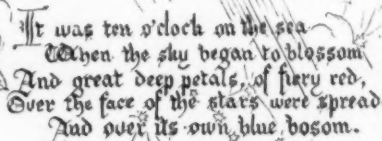 It was ten o'clock on the sea
When the sky began to blossom
And great deep petals, of fiery red,
Over the face of the stars were spread
And over its own blue, bosom.